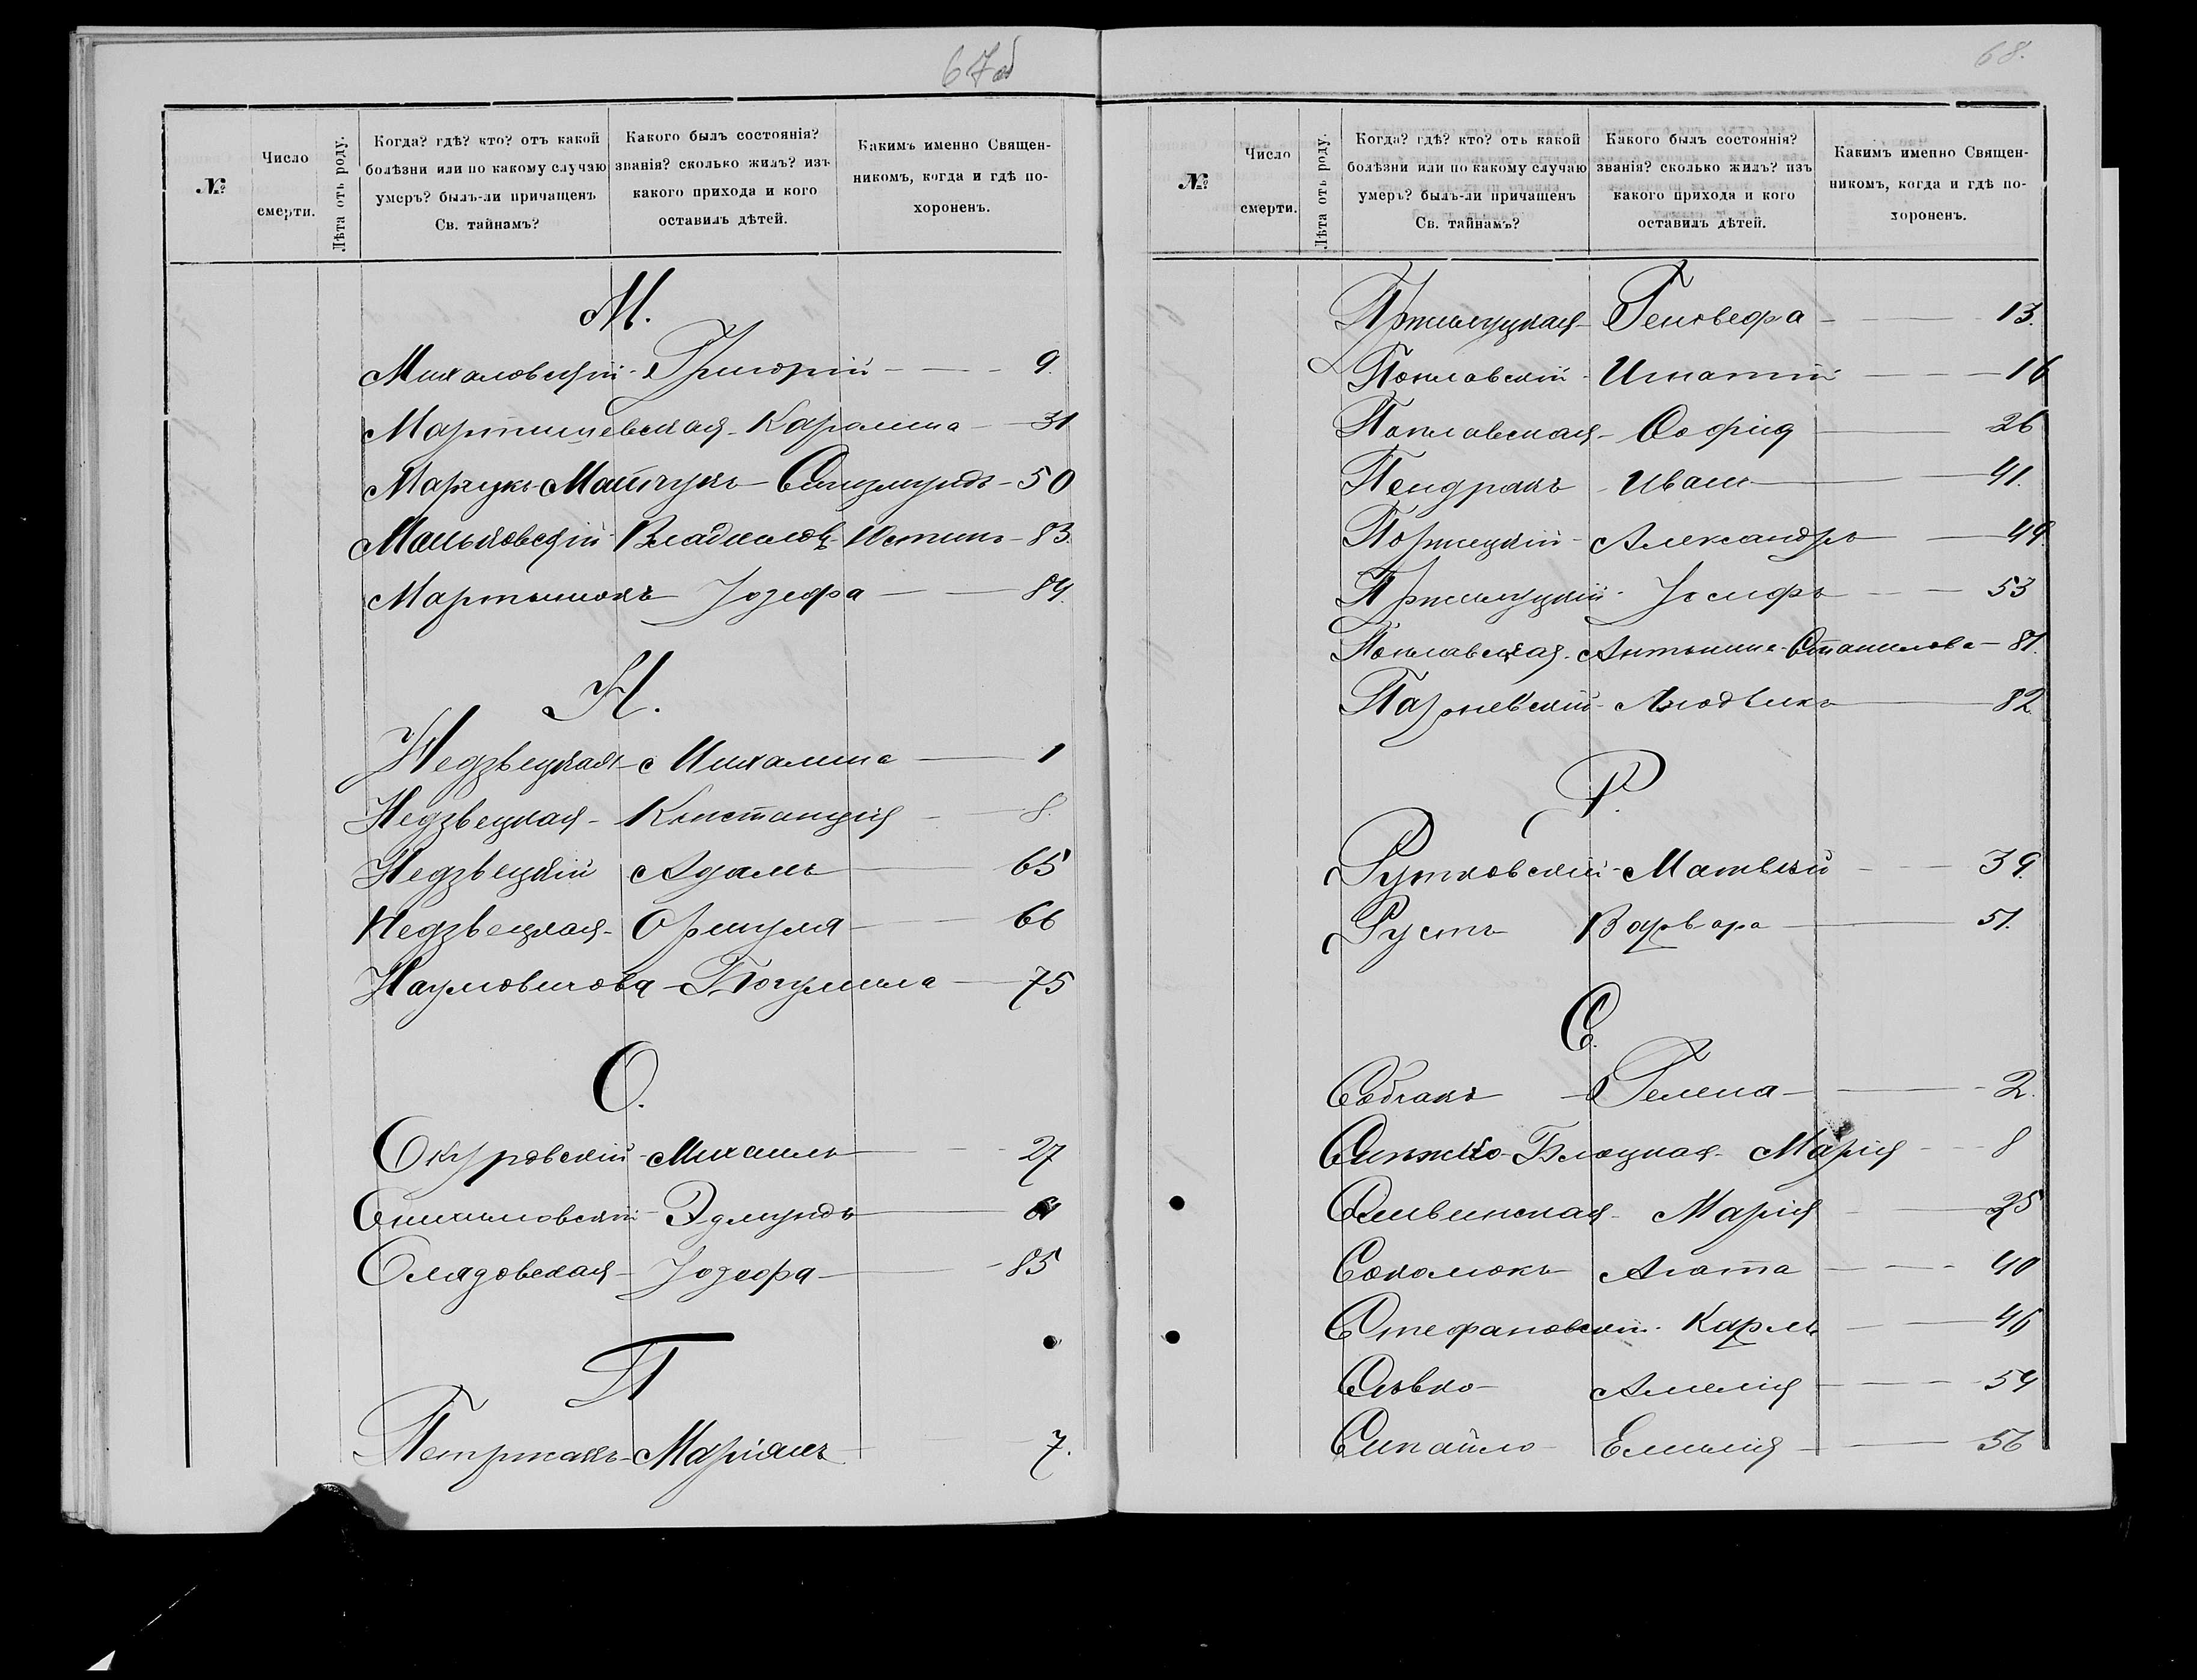 67об
№
Число
смерти.
Лѣта отъ роду.
Когда? гдѣ? кто? отъ какой
болѣзни или по какому случаю
умеръ? былъ-ли причащенъ
Св. тайнамъ?
Какого былъ состоянія?
званія? сколько жилъ? изъ
какого прихода и кого
оставилъ дѣтей.
Какимъ именно Священ-
никомъ, когда и гдѣ по-
хороненъ.
М.
Михаловскій - Григорій - 9.
Мартишевская - Каролина - 31
Марчукъ-Матчукъ - Сигизмундъ - 50
Маньковскій Владиславъ-Юстинъ - 83.
Мартынюкъ Юзефа - 84.
Н.
Недзвецкая - Михалина - 1
Недзвецкая - Констанція - 8.
Недзвецкій Адамъ - 65
Недзвецкая - Оршуля - 66
Наумовичова - Богумила - 75
О.
Окуровскій - Михаилъ - 27
Эдмундъ
Олядовская - Юзефа - 85
П
Петржакъ - Маріанъ - 7.
68.
№
Число
смерти.
Лѣта отъ роду.
Когда? гдѣ? кто? отъ какой
болѣзни или по какому случаю
умеръ? былъ-ли причащенъ
Св. тайнамъ?
Какого былъ состоянія?
званія? сколько жилъ? изъ
какого прихода и кого
оставилъ дѣтей.
Какимъ именно Священ-
никомъ, когда и гдѣ по-
хороненъ.
Пржилуцкая - Геновефа - 13.
Поплавскій - Игнатій - 16
Поплавская - Софія 26
Пендракъ - Иванъ - 41.
Поржецкій - Александръ - 49.
Пржилуцкій - Іосифъ - 53
Поплавская - Антонина-Станислава - 81.
Парневскій - Людвикъ - 82
Р.
Рутковскій - Матвѣй - 39.
Русть Варвара - 51.
С.
Собчакъ - Гелена - 2.
Сипко-Блоцкая - Марія - 8
Сливинская - Марія - 25
Соколюкъ Агата - 40
Стефановскій - Карлъ - 46
Сывко - Амелія - 54
Сипайло - Емилія - 56